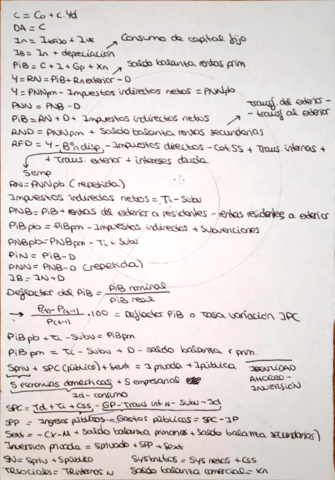 C = Co + c·Yd
DA = C
In = Ibruta + Ive
→ Consumo de capital fijo
IB = In + depreciación
→ Saldo balanza rentas prim
PiB = C + I + Gp + Xn
Y = RN = PiB + Rn exterior - D
Y = PNNpm - Impuestos indirectos netos = PNNpb
PNN = PNB - D
→ Transf. del exterior -
- transf al exterior
PiB = RN + D + Impuestos indirectos netos
RND = PNNpm + Saldo balanza rentas secundarias
RFD = Y - Bºn disp - Impuestos directos - Cot SS + Trans internas +
+ Trans. exterior + intereses deuda
Semp
RN = PNNpb (repetida)
Impuestos indirectos netos = Ti - Subv
PNB = PiB + rentas del exterior a residentes - rentas residentes a exterior
PiBpb = PiBpm - Impuestos indirectos + Subvenciones
PNBpb = PNBpm - Ti + Subv
PiN = PiB - D
PNN = PNB - D (repetida)
IB = IN + D
Deflactor del PiB = PiB nominal / PiB real
→ · 100 = Deflactor PiB o Tasa variación IPC
PiBpb + Ti - Subv = PiBpm
PiBpm = Ti - Subv + D - saldo balanza r prim.
Spriv + SPC (público) + Sext = I privada + I pública
IDENTIDAD AHORRO-INVERSIÓN
S economías domésticas + S empresarial
Yd - consumo
SPC = Td + Ti + Css - GP - Trans int n - Subv - Id
SPP = Ingresos públicos - Gastos públicos = SPC - IP
Sext = - (X - M + saldo balanza primarias + Saldo balanza secundarias)
Inversión privada = Sprivado + SPP + Sext
SN = Spriv + Spúblico
Sys brutos = Sys netos + CSS
TRsociales = TR internas N
Saldo balanza comercial = Xn